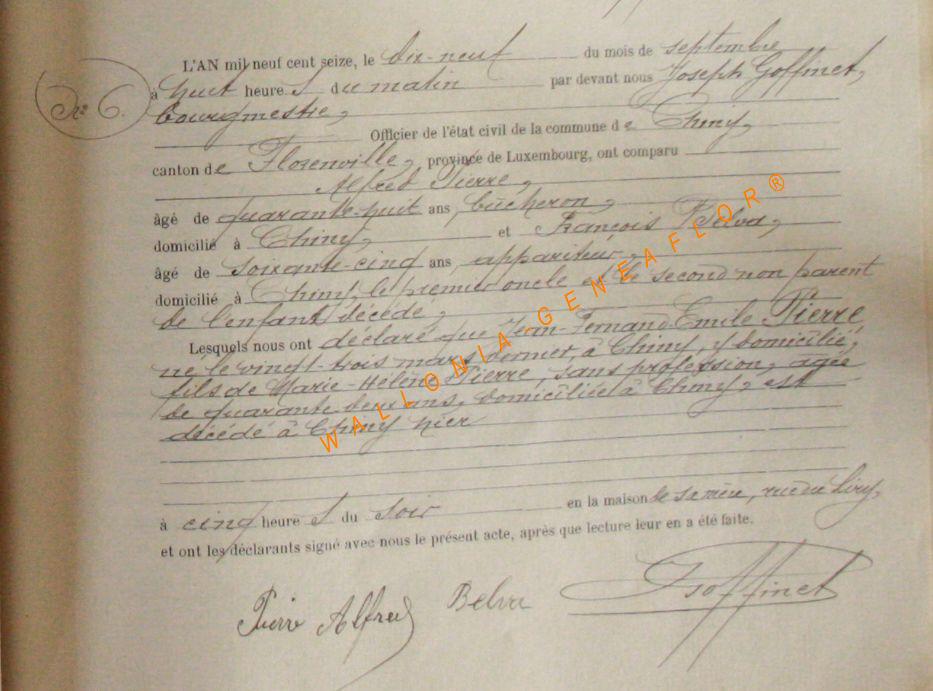 L'AN mil neuf cent seize, le dix-neuf du mois de septembre
à huit heure s du matin par devant nous Joseph Goffinet,
N° 6.
bourgmestre,
Officier de l'état civil de la commune de Chiny,
canton de Florenville, province de Luxembourg, ont comparu
Alfred Pierre,
âgé de quarante-huit ans, bûcheron,
domicilié à Chiny, et François Belva,
âgé de soixante-cinq ans, appariteur,
domicilié à Chiny, le premier oncle et le second non parent
de l'enfant décédé,
Lesquels nous ont déclaré que Jean-Fernand Emile Pierre
né le vingt-trois mars dernier, à Chiny, y domicilié,
fils de Marie-Hélène Pierre, sans profession, agée
de quarante deux ans, domiciliée à Chiny, est
décédé à Chiny hier
à cinq heure s du soir en la maison de sa mère, rue du
et ont les déclarants signé avec nous le présent acte, après que lecture leur en a été faite.
Pierre Alfred Belva JGoffinet
WALLONIA-GENEAFLOR®